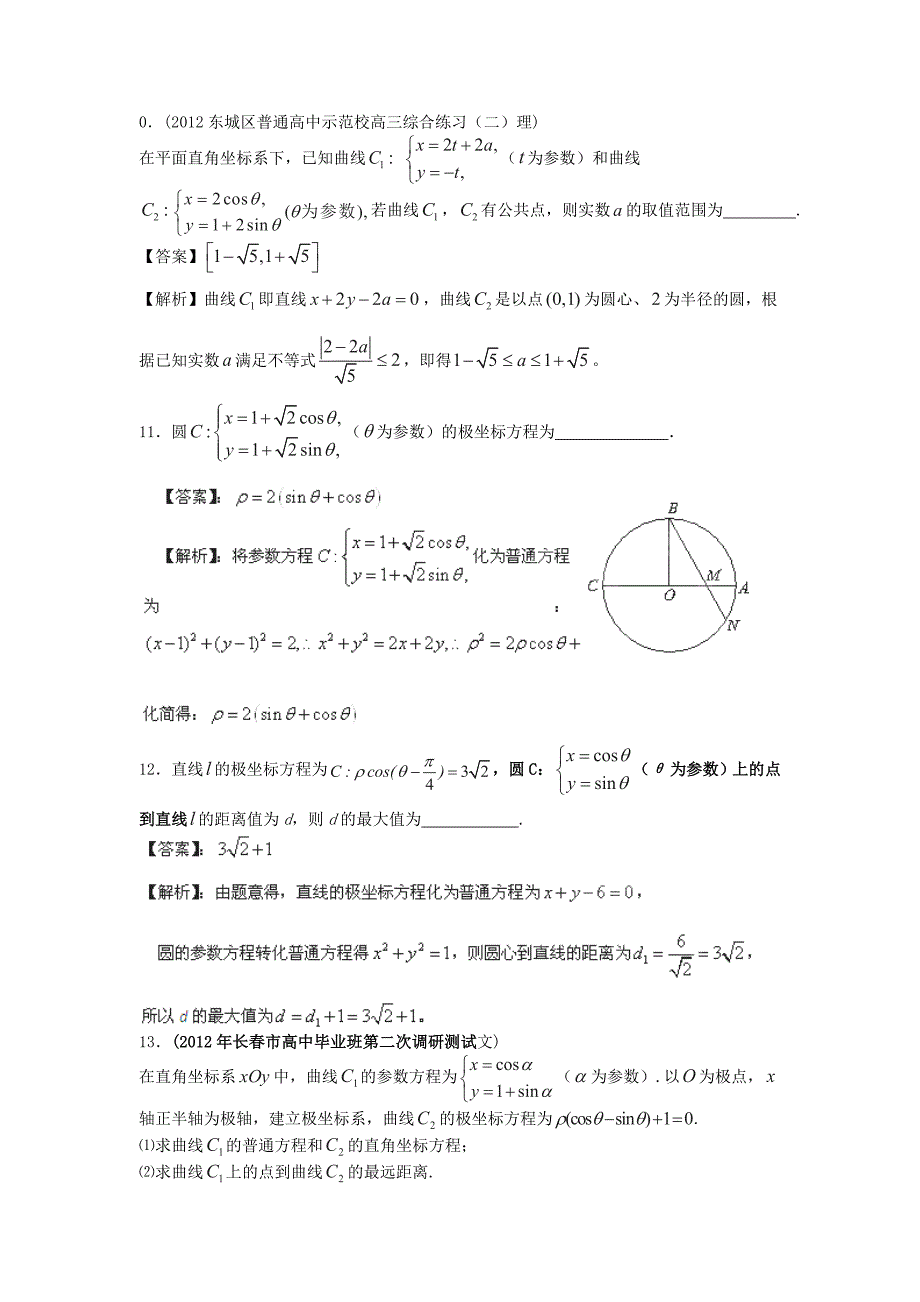 0. (2012东城区普通高中示范校高三综合练习（二）理)
在平面直角坐标系下，已知曲线C₁： {x=2t+2a, y=−t, （t为参数）和曲线
C₂：{x=2cosθ, y=1+2sinθ (θ为参数), 若曲线C₁，C₂有公共点，则实数a的取值范围为_________.
【答案】[1−√5,1+√5]
【解析】曲线C₁即直线x+2y−2a=0，曲线C₂是以点(0,1)为圆心、2为半径的圆，根
据已知实数a满足不等式|2−2a|/√5≤2，即得1−√5≤a≤1+√5。
11．圆C:{x=1+√2cosθ, y=1+√2sinθ, （θ为参数）的极坐标方程为______________．
【答案】：ρ=2(sinθ+cosθ)
【解析】：将参数方程C:{x=1+√2cosθ, y=1+√2sinθ, 化为普通方程
为 :
(x−1)²+(y−1)²=2,∴x²+y²=2x+2y,∴ρ²=2ρcosθ+
B
C
O
M
A
N
化简得：ρ=2(sinθ+cosθ)
12．直线l的极坐标方程为C:ρcos(θ−π/4)=3√2，圆C：{x=cosθ y=sinθ（θ为参数)上的点
到直线l的距离值为d，则d的最大值为____________.
【答案】：3√2+1
【解析】：由题意得，直线的极坐标方程化为普通方程为x+y−6=0，
圆的参数方程转化普通方程得x²+y²=1，则圆心到直线的距离为d₁=6/√2=3√2，
所以d的最大值为d=d₁+1=3√2+1。
13．(2012年长春市高中毕业班第二次调研测试文)
在直角坐标系xOy中，曲线C₁的参数方程为{x=cosα y=1+sinα（α为参数）.以O为极点，x
轴正半轴为极轴，建立极坐标系，曲线C₂的极坐标方程为ρ(cosθ−sinθ)+1=0.
⑴求曲线C₁的普通方程和C₂的直角坐标方程；
⑵求曲线C₁上的点到曲线C₂的最远距离.